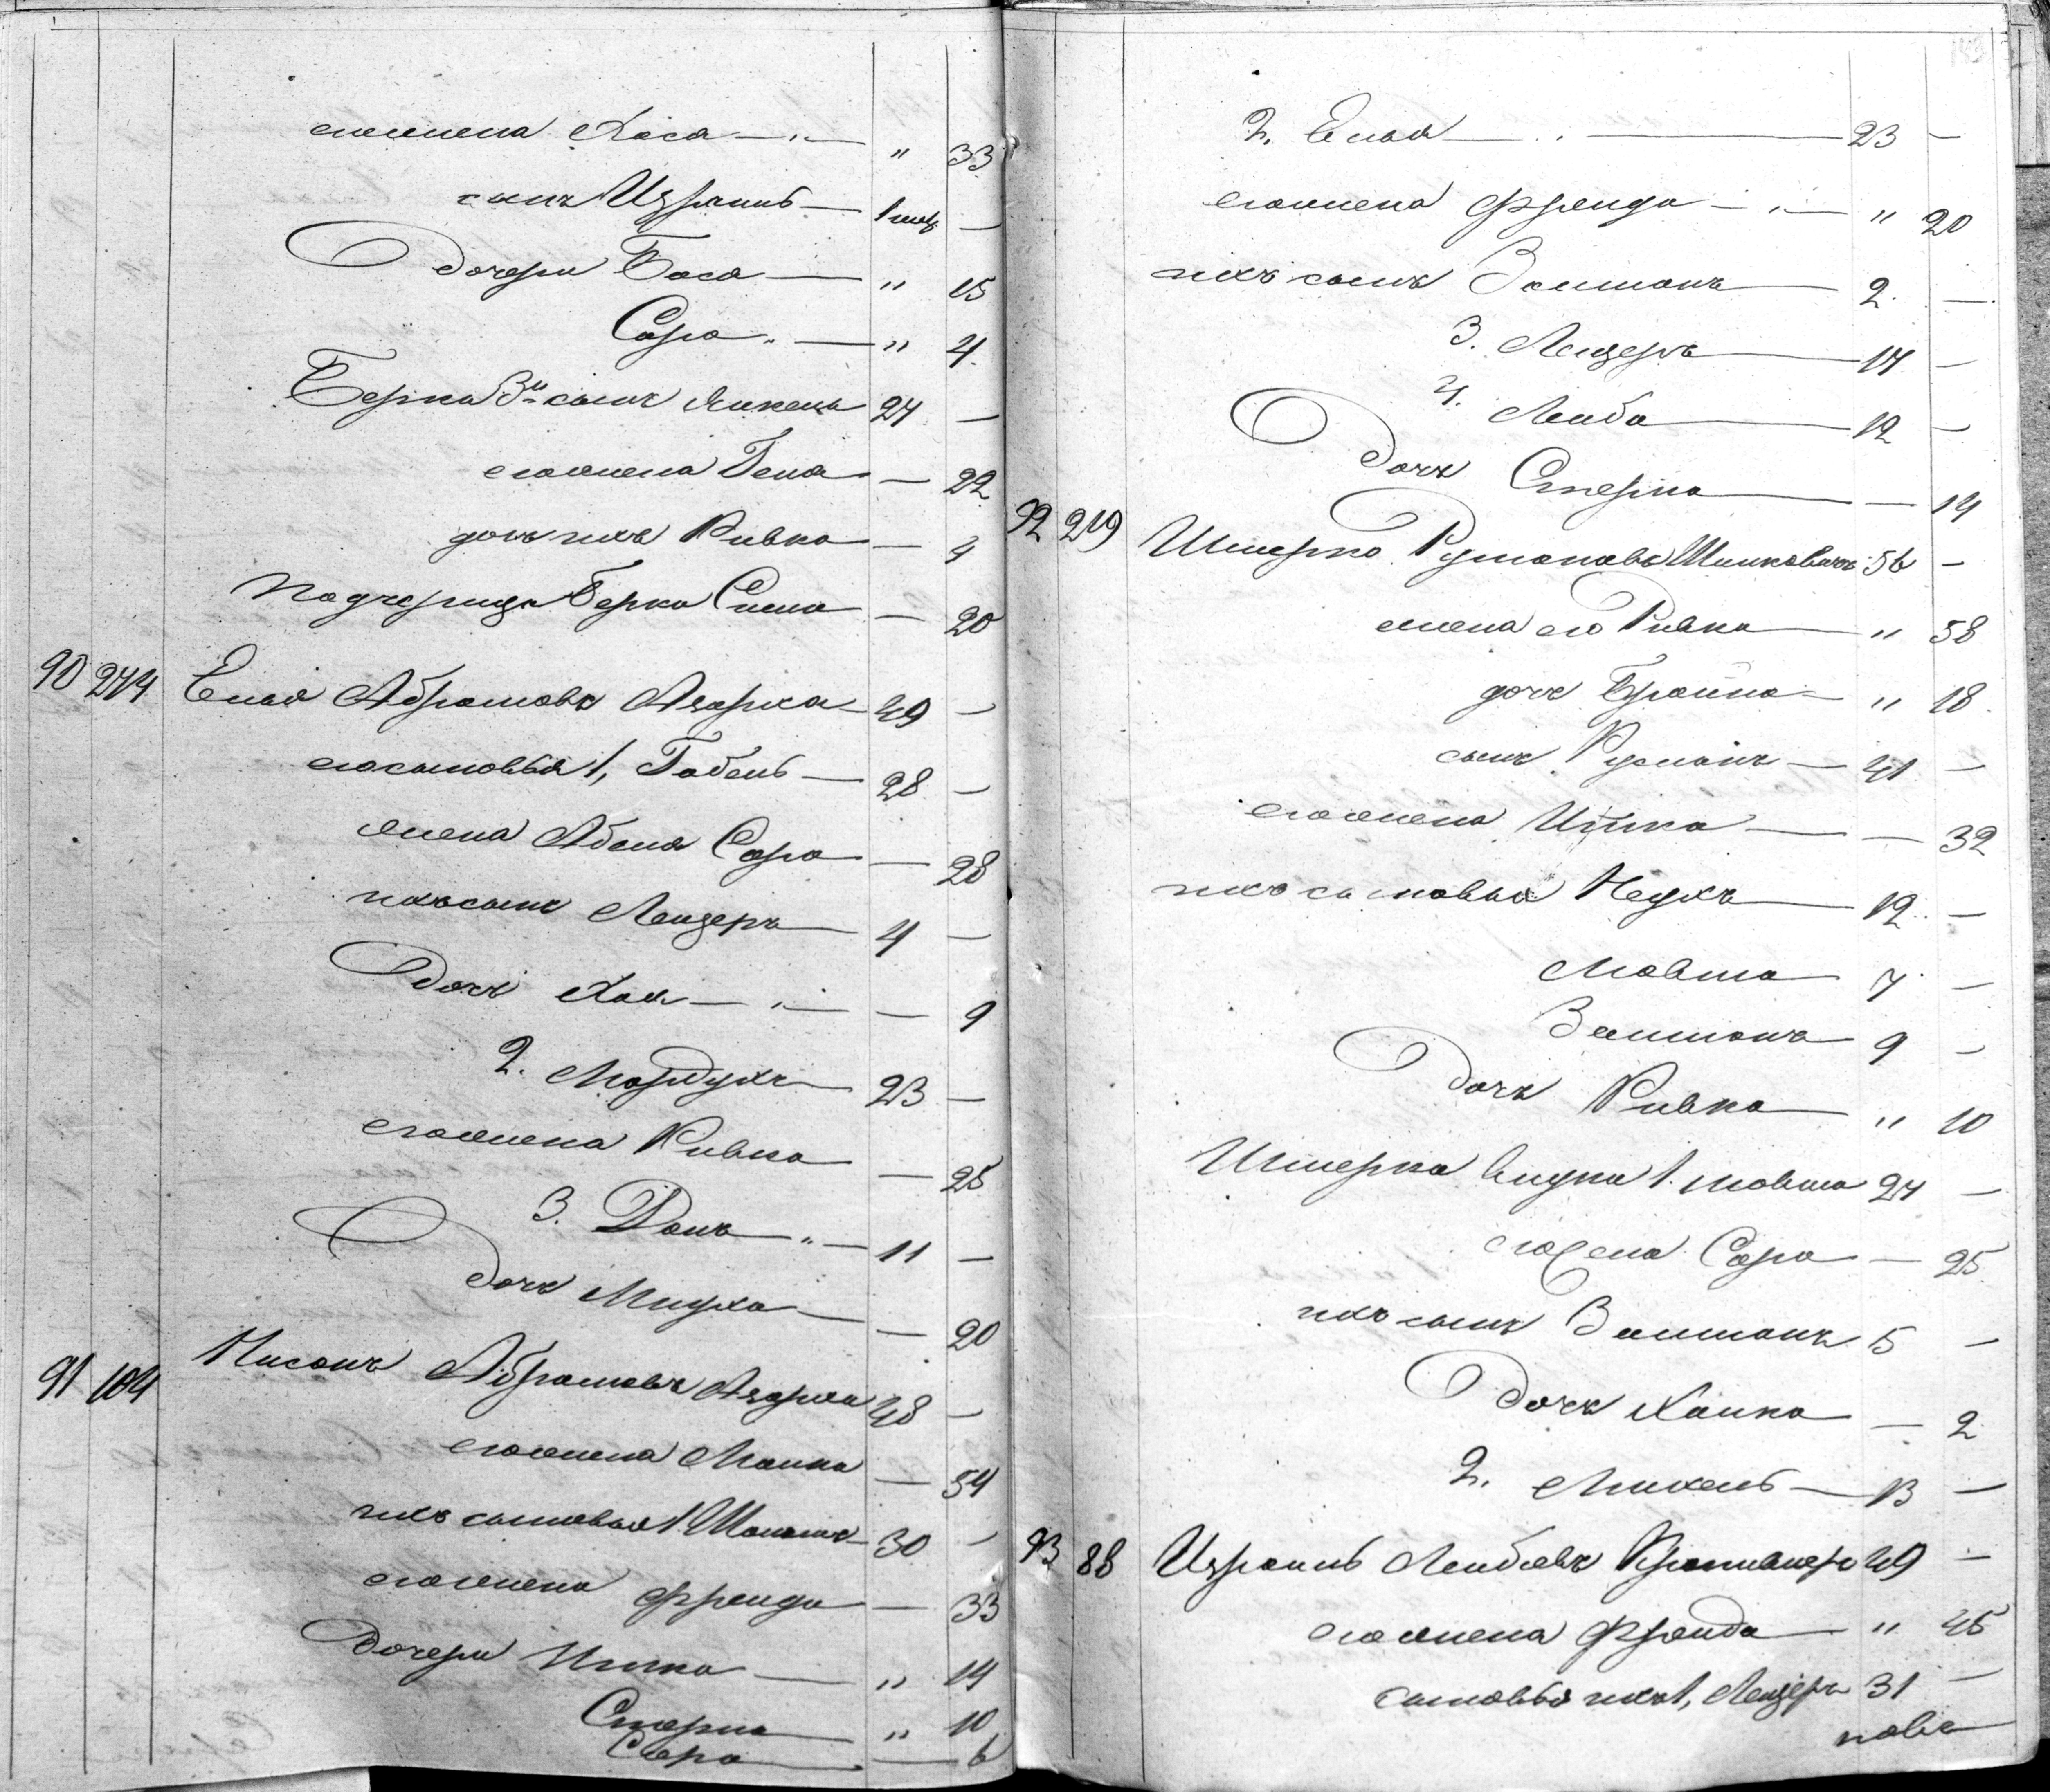 егожена Хаса — " — " 33
сынъ Израиль — 1 мес. —
Дочери Баса — " 15
Сара " — " 4
Берка 3й сынъ Янкель 24 —
егожена Гена — 22
дочь ихъ Ривка — 4
Подчерица Берка Сима — 20
90 244 Елья Абрамовъ Азарха 49 —
егосыновья 1, Габель — 28 —
жена Абеля Сара — 28
ихъ сынъ Лейзеръ — 4 —
Дочь Хая — " — 9
2. Мордухъ — 23 —
егожена Ривка — 25
3. Донъ " — 11 —
Дочь Минуха — 20
91 104 Нисонъ Абрамовъ Азарха 48 —
егожена Манка — 54
ихъ сыновья 1 30 —
егожена Фрейда — 33
Дочери Итка — " 14
Стерна — " 10
Сара — 6
2. Елья — 23 —
егожена Фрейда — " — " 20
ихъ сынъ Залманъ — 2 —
3. Лейзеръ — 17 —
4. Лейба — 12 —
Дочь Стерна — 14
92 219 Шмерко Румановъ Шишковичъ 56 —
жена его Ривка — " 58
дочь Брайна — " 18
сынъ Руманъ — 41 —
егожена Итка — 32
ихъ сыновья Неухъ — 12 —
Мовша 7 —
Залманъ 9 —
Дочь Ривка — " 10
Шмерка внуки 1. Мовша 24 —
егожена Сара — 25
ихъ сынъ Залманъ 5 —
Дочь Ханка — 2
2. Михель — 13 —
93 88 Израиль Лейбовъ 49 —
егожена Фрейда — " 45
сыновья ихъ 1, Лейзеръ 31 —